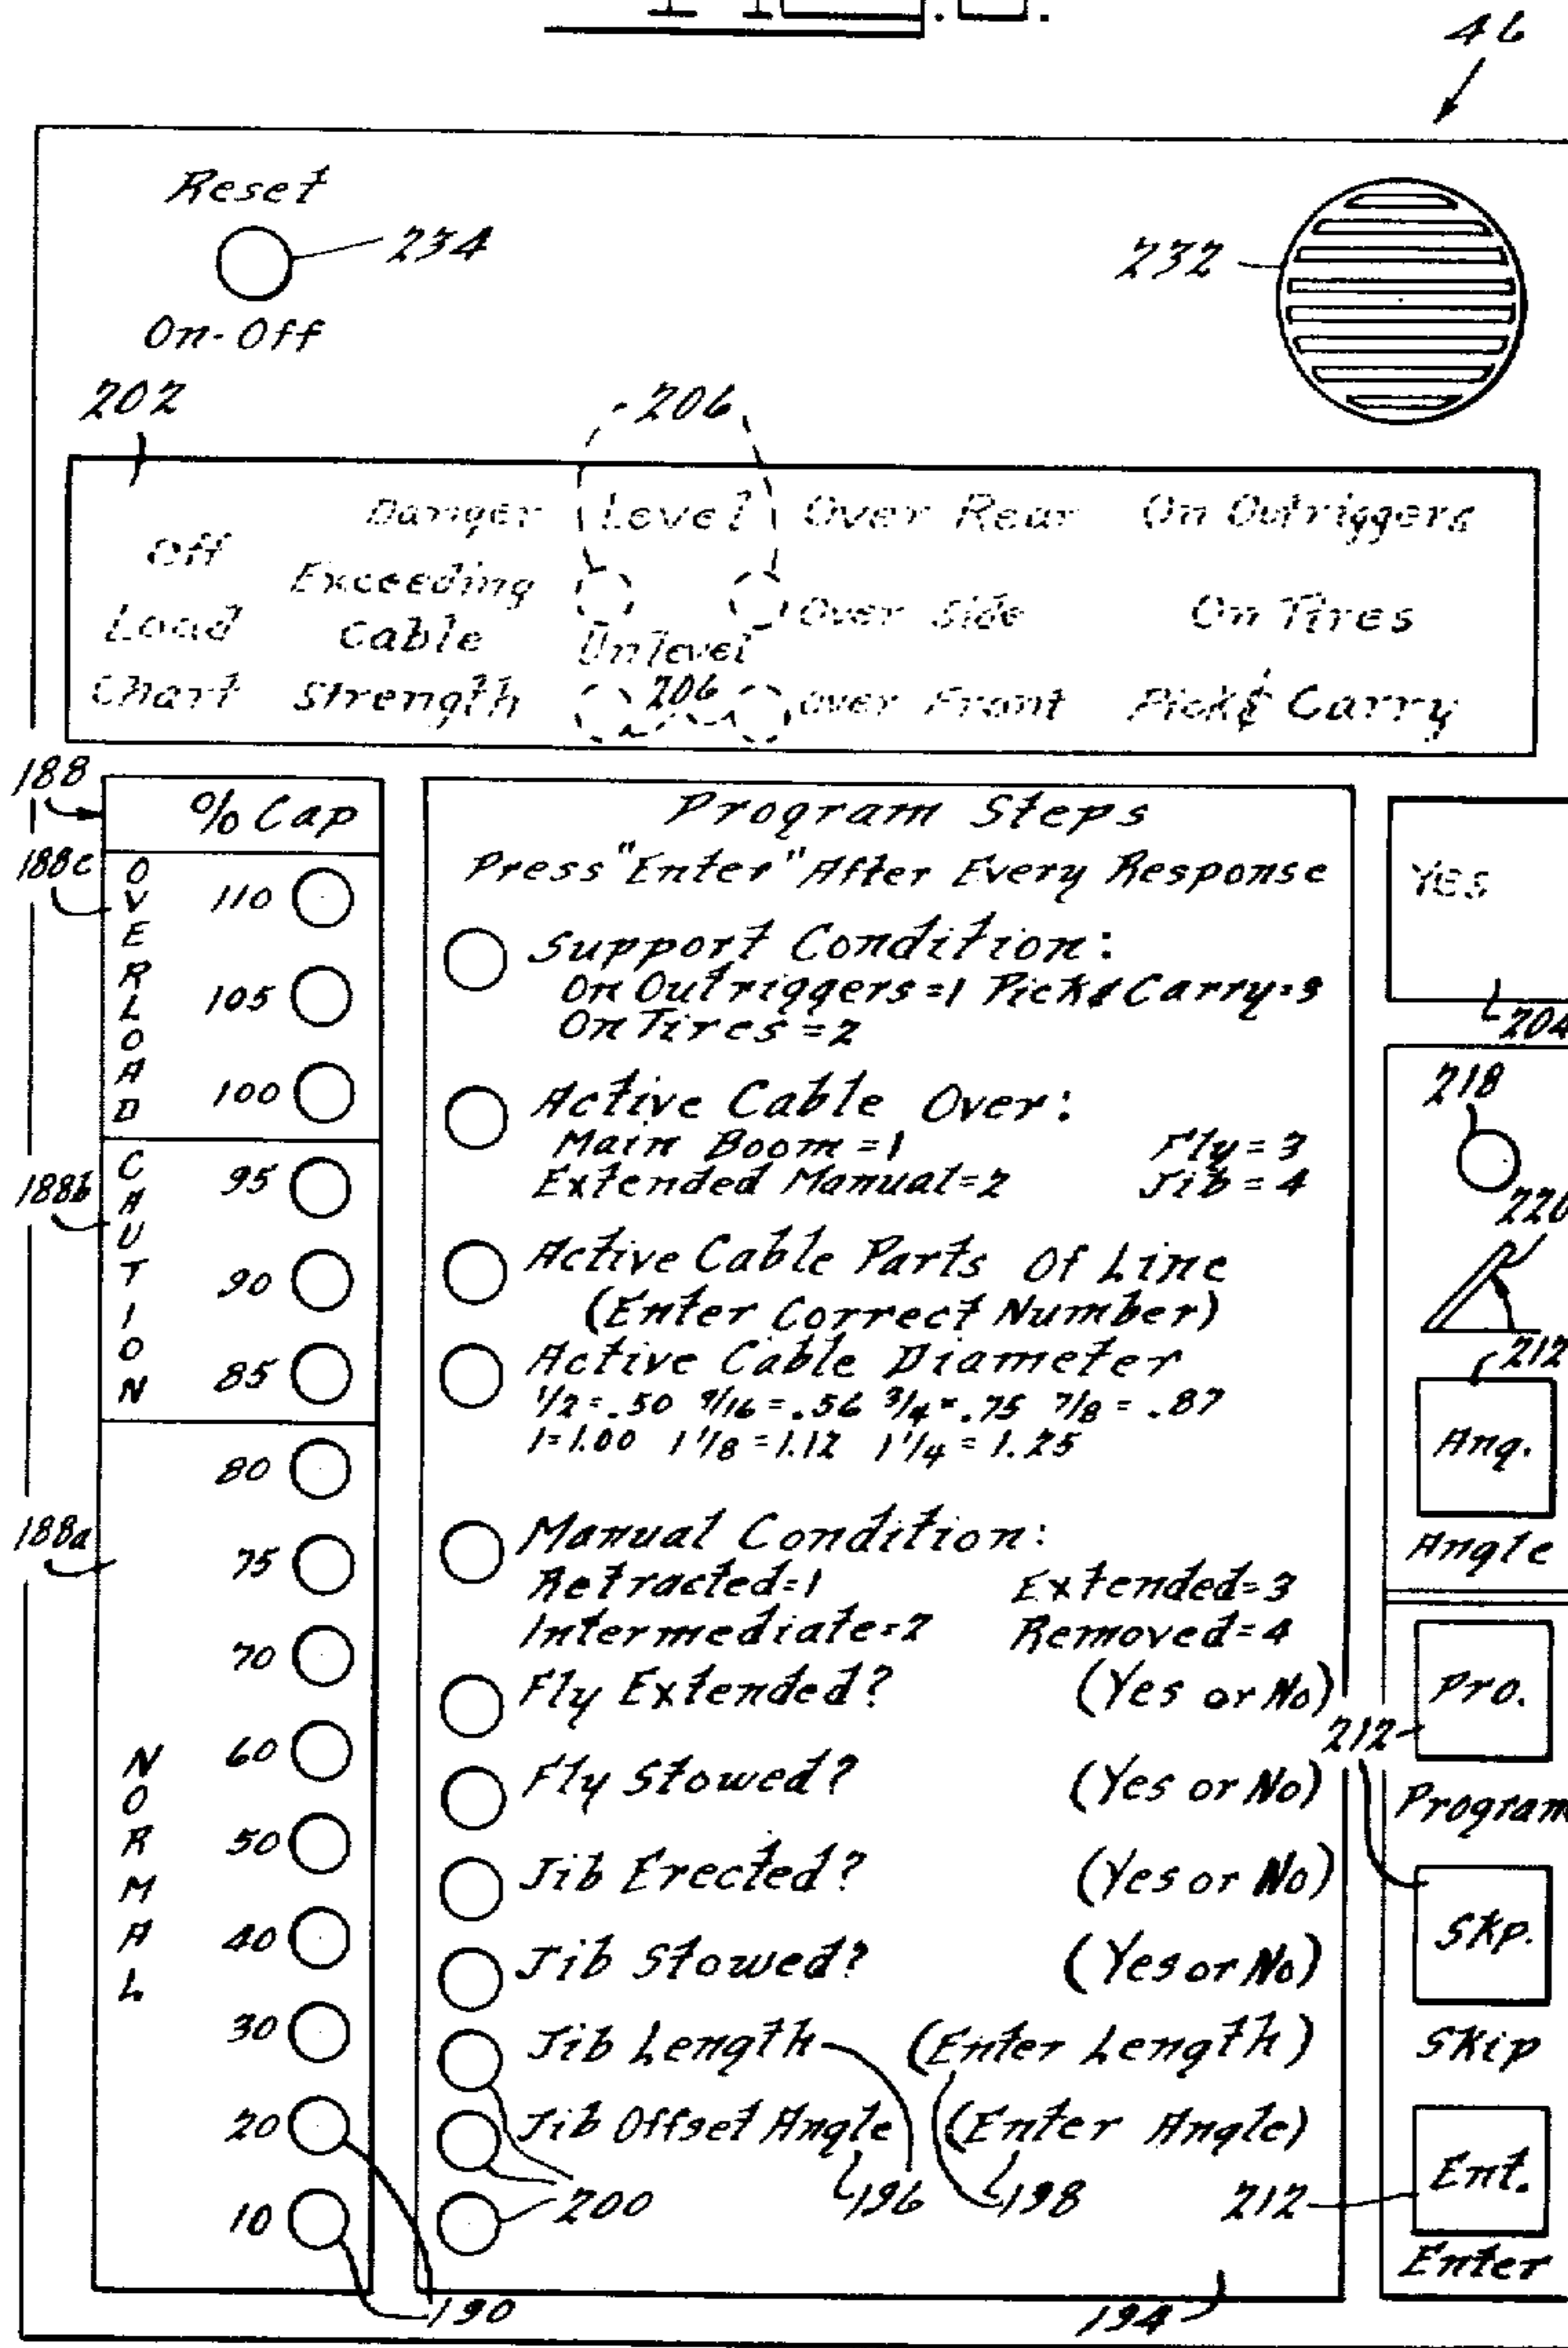 46
Reset
234
On-Off
232
202
206
Off
Load
Chart
Danger
Exceeding
Cable
Strength
Level
Unlevel
206
Over Rear
Over Side
Over Front
On Outriggers
On Tires
Pick & Carry
188
% Cap
188c
OVERLOAD
110
105
100
188b
CAUTION
95
90
85
188a
NORMAL
80
75
70
60
50
40
30
20
10
190
Program Steps
Press "Enter" After Every Response
Support Condition:
On Outriggers=1 Pick & Carry=3
On Tires=2
Active Cable Over:
Main Boom=1 Fly=3
Extended Manual=2 Jib=4
Active Cable Parts Of Line
(Enter Correct Number)
Active Cable Diameter
1/2=.50 9/16=.56 3/4=.75 7/8=.87
1=1.00 1 1/8=1.12 1 1/4=1.25
Manual Condition:
Retracted=1 Extended=3
Intermediate=2 Removed=4
Fly Extended? (Yes or No)
Fly Stowed? (Yes or No)
Jib Erected? (Yes or No)
Jib Stowed? (Yes or No)
Jib Length (Enter Length)
Jib Offset Angle (Enter Angle)
200
196
198
194
Yes
204
218
220
212
Ang.
Angle
Pro.
212
Program
Skp.
Skip
212
Ent.
Enter